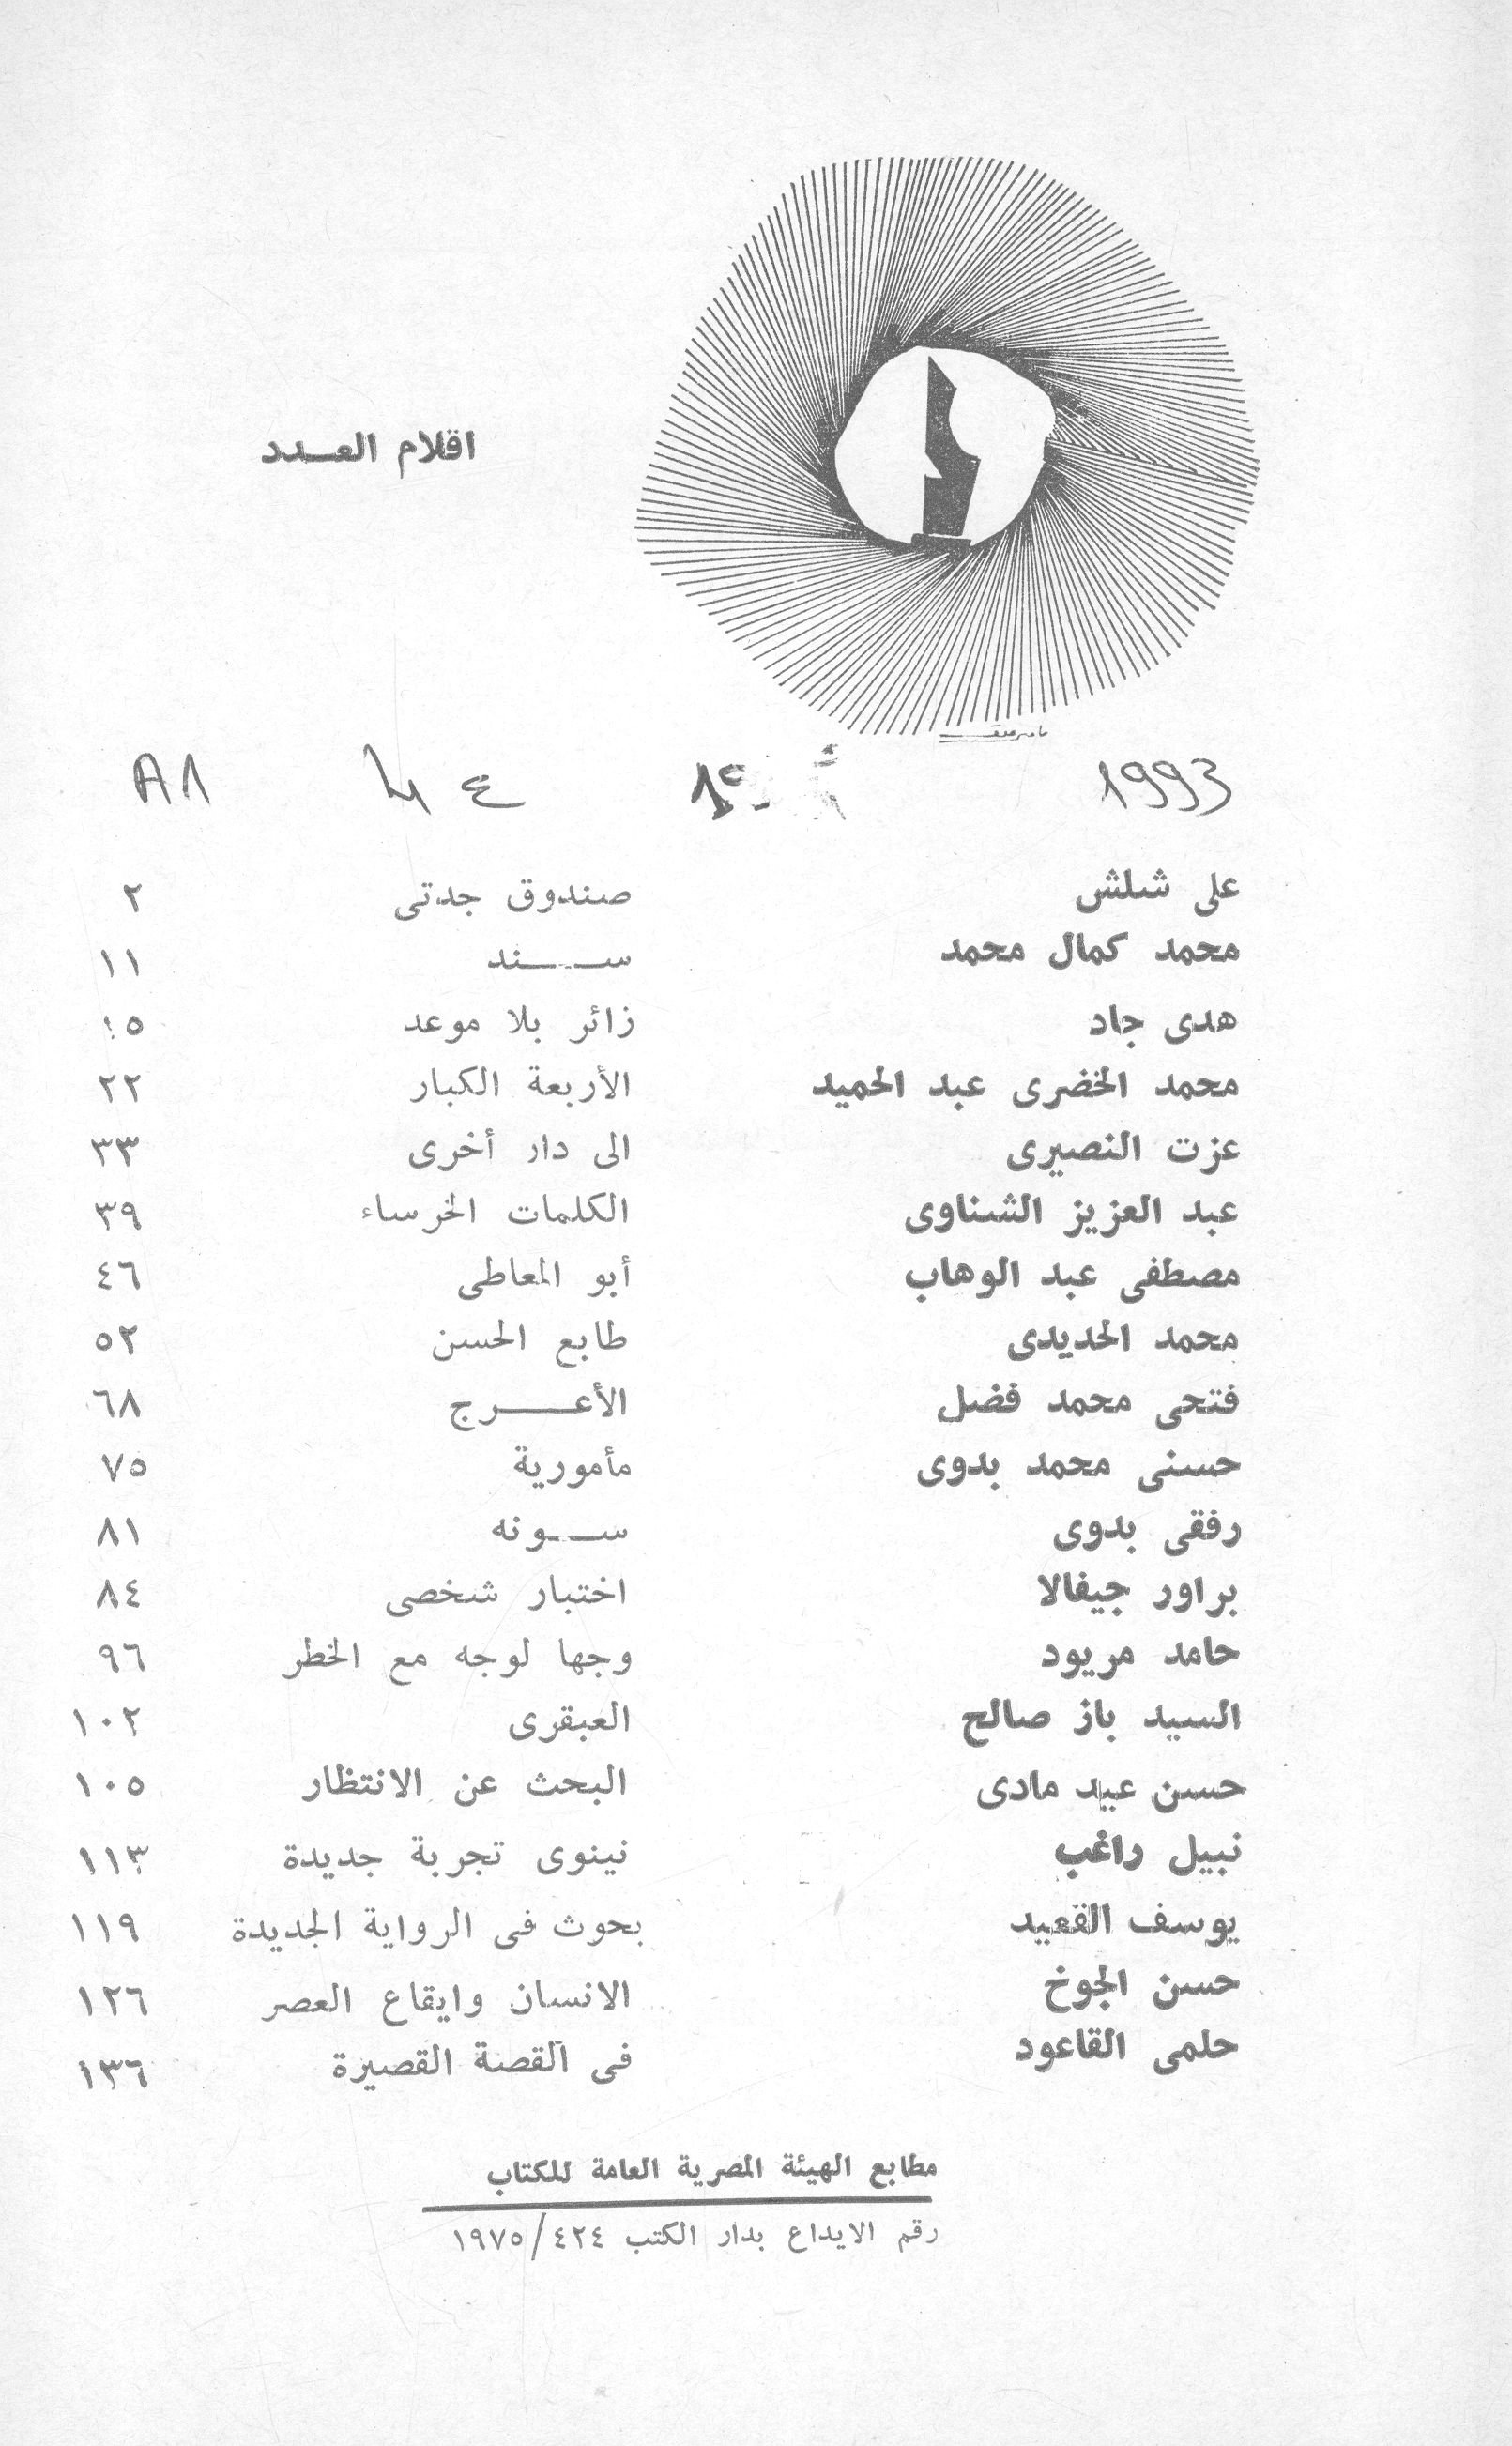 اقلام العـدد
1993
على شلش صندوق جدتى ٢
محمد كمال محمد ســـند ١١
هدى جاد زائر بلا موعد ١٥
محمد الخضرى عبد الحميد الأربعة الكبار ٢٢
عزت النصيرى الى دار أخرى ٣٣
عبد العزيز الشناوى الكلمات الخرساء ٣٩
مصطفى عبد الوهاب أبو المعاطى ٤٦
محمد الحديدى طابع الحسن ٥٢
فتحى محمد فضل الأعـــرج ٦٨
حسنى محمد بدوى مأمورية ٧٥
رفقى بدوى ســونه ٨١
براور جيفالا اختبار شخصى ٨٤
حامد مريود وجها لوجه مع الخطر ٩٦
السيد باز صالح العبقرى ١٠٢
حسن عيد مادى البحث عن الانتظار ١٠٥
نبيل راغب نينوى تجربة جديدة ١١٣
يوسف القعيد بحوث فى الرواية الجديدة ١١٩
حسن الجوخ الانسان وايقاع العصر ١٢٦
حلمى القاعود فى القصة القصيرة ١٣٦
مطابع الهيئة المصرية العامة للكتاب
رقم الايداع بدار الكتب ٤٢٤/١٩٧٥